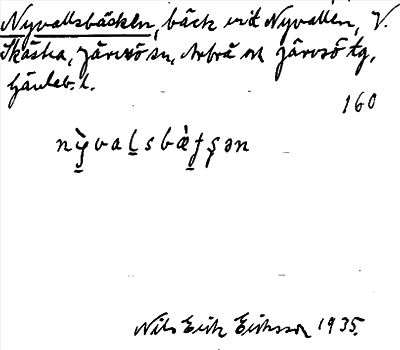 Nyvallsbäcken, bäck vid Nyvallen, V.
Skästra, Järvsö sn, Arbrå och Järvsö tg,
Gävleb. l.
160
nỳvaḷsbæ̀tʂən
Nils Erik Eriksson 1935.